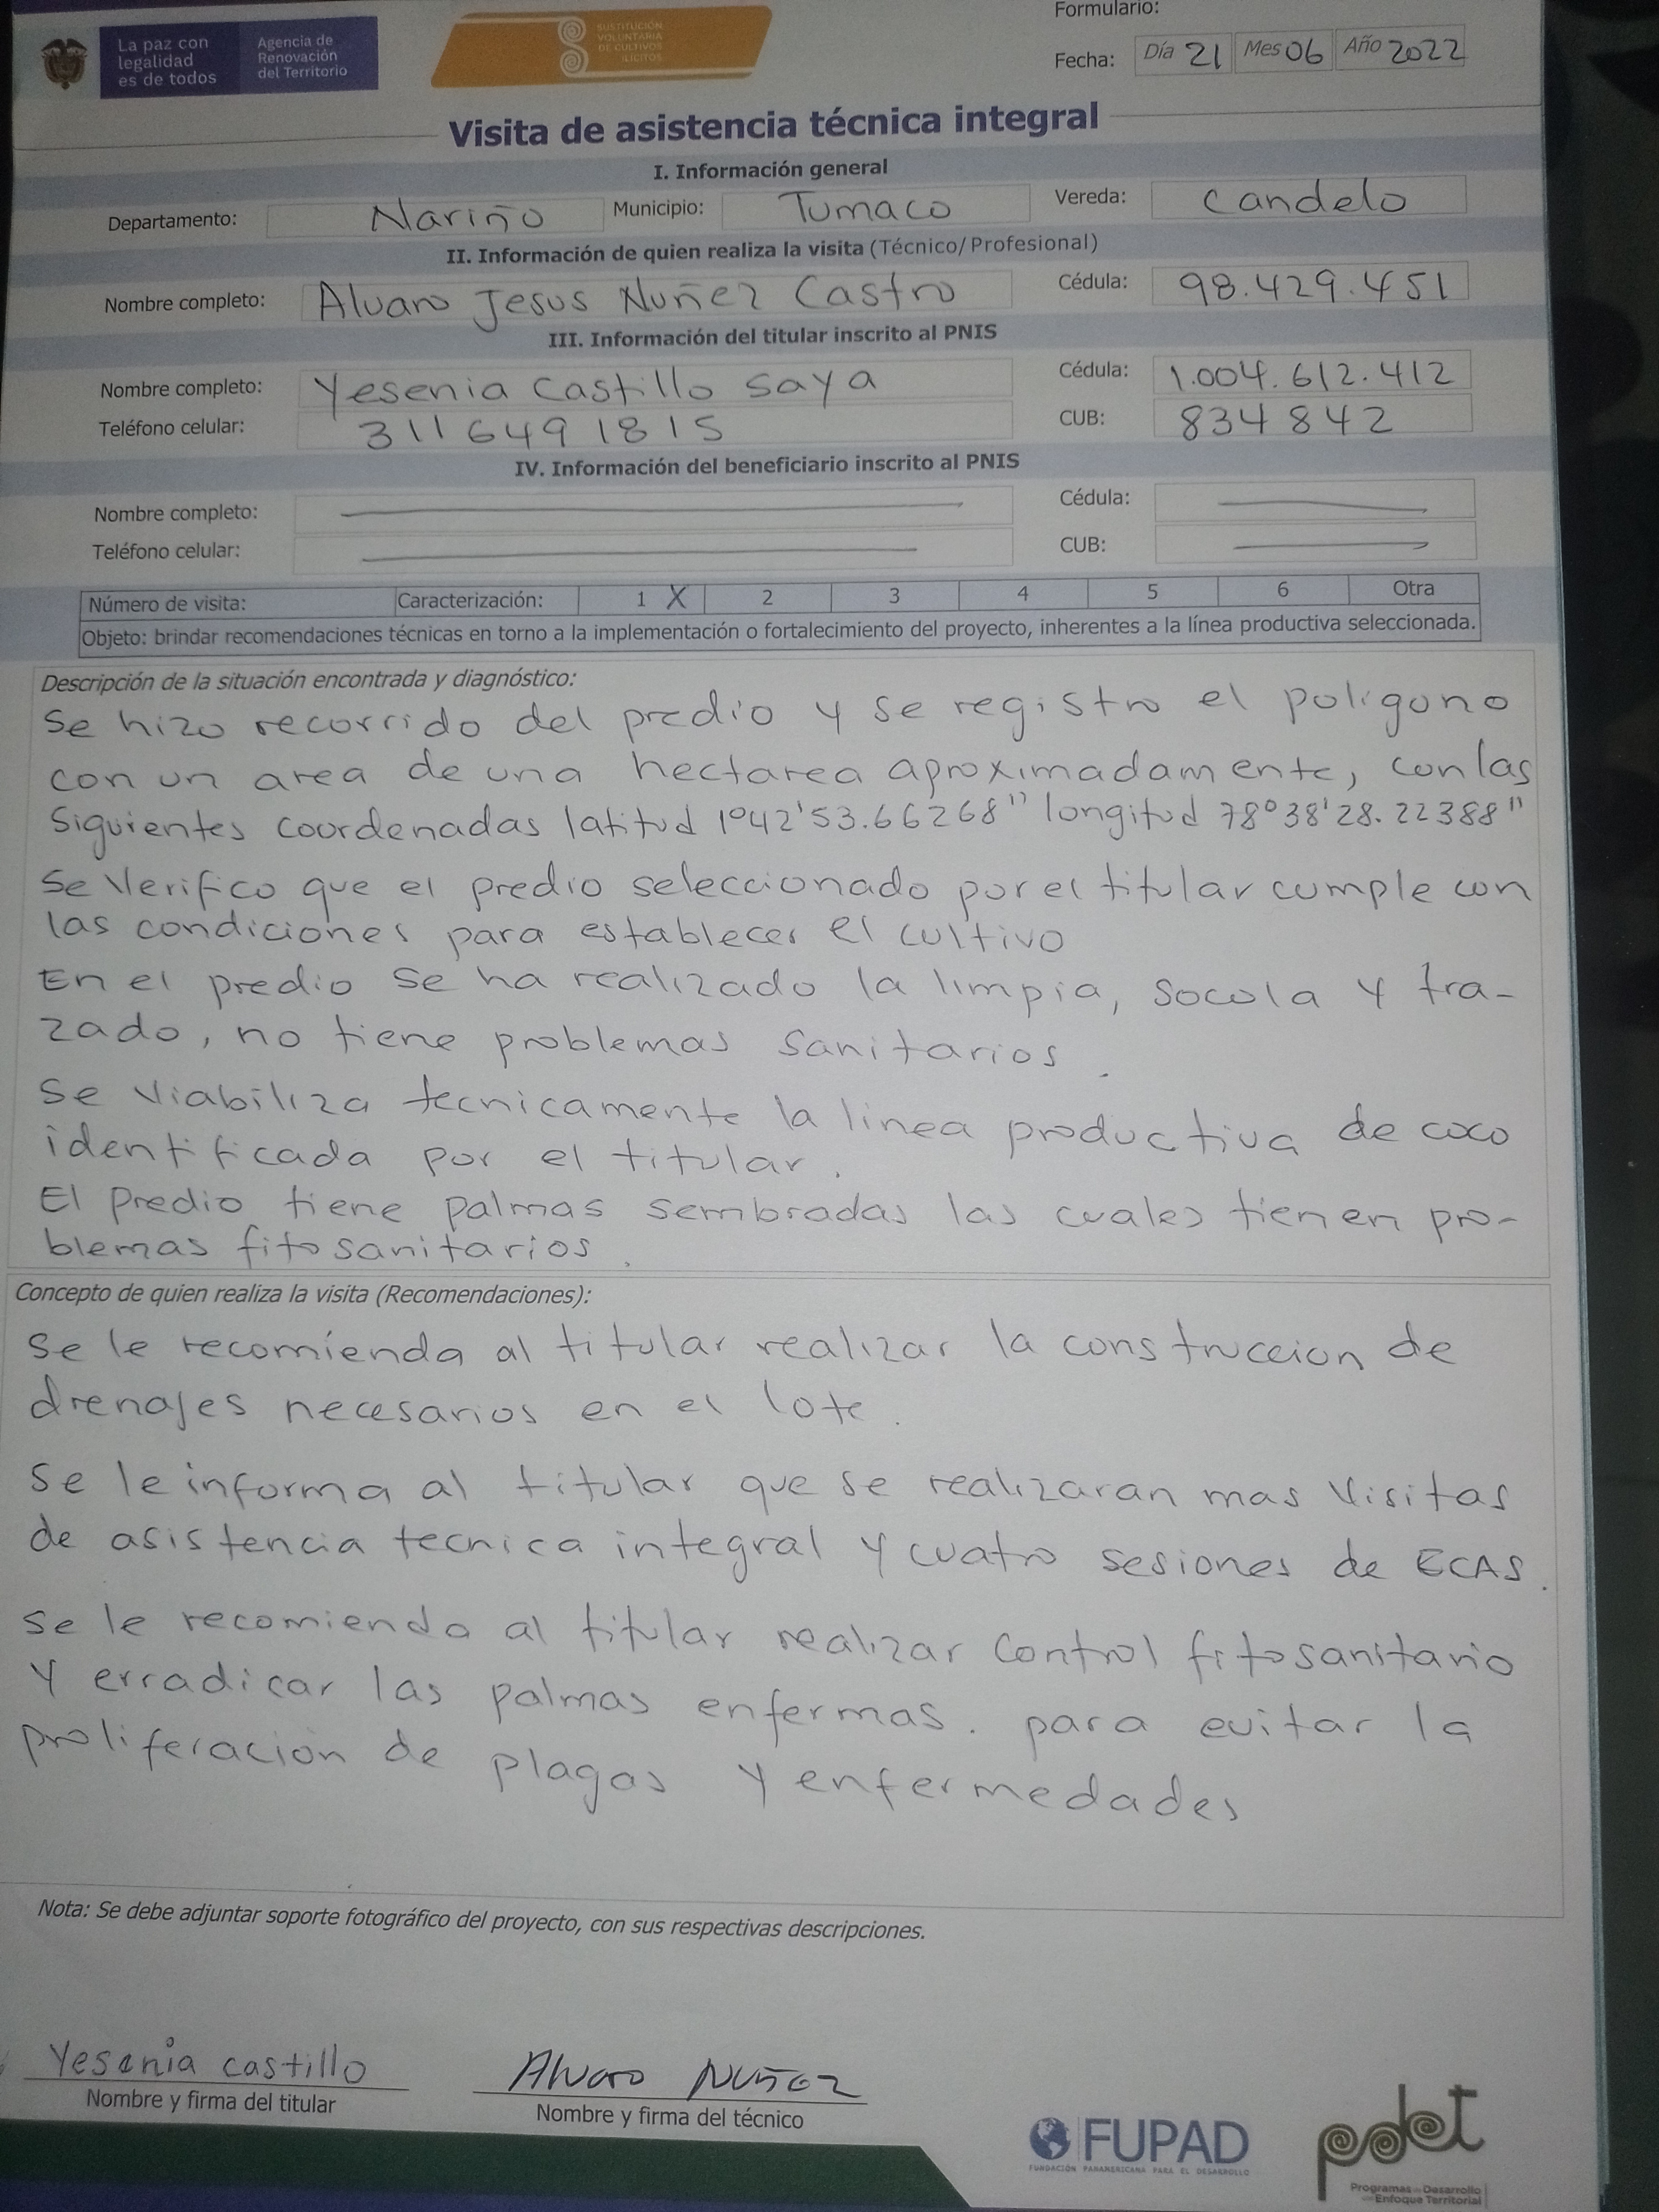 La paz con
legalidad
es de todos
Agencia de
Renovación
del Territorio
SUSTITUCIÓN
VOLUNTARIA
DE CULTIVOS
ILÍCITOS
Formulario:
Fecha: Día 21 Mes 06 Año 2022
Visita de asistencia técnica integral
I. Información general
Departamento: Nariño Municipio: Tumaco Vereda: Candelo
II. Información de quien realiza la visita (Técnico/Profesional)
Nombre completo: Alvaro Jesus Nuñez Castro Cédula: 98.429.451
III. Información del titular inscrito al PNIS
Nombre completo: Yesenia Castillo Saya Cédula: 1.004.612.412
Teléfono celular: 3116491815 CUB: 834842
IV. Información del beneficiario inscrito al PNIS
Nombre completo: Cédula:
Teléfono celular: CUB:
Número de visita: Caracterización: 1 X 2 3 4 5 6 Otra
Objeto: brindar recomendaciones técnicas en torno a la implementación o fortalecimiento del proyecto, inherentes a la línea productiva seleccionada.
Descripción de la situación encontrada y diagnóstico:
Se hizo recorrido del predio y se registro el poligono
con un area de una hectarea aproximadamente, con las
Siguientes coordenadas latitud 1°42'53.66268" longitud 78°38'28.22388"
Se Verifico que el predio seleccionado por el titular cumple con
las condiciones para establecer el cultivo
En el predio se ha realizado la limpia, socola y tra-
zado, no tiene problemas sanitarios.
Se Viabiliza tecnicamente la linea productiva de coco
identificada por el titular.
El predio tiene palmas sembradas las cuales tienen pro-
blemas fitosanitarios.
Concepto de quien realiza la visita (Recomendaciones):
Se le recomienda al titular realizar la construccion de
drenajes necesarios en el lote.
Se le informa al titular que se realizaran mas Visitas
de asistencia tecnica integral y cuatro sesiones de ECAS.
Se le recomienda al titular realizar control fitosanitario
Y erradicar las palmas enfermas. para evitar la
proliferación de plagas y enfermedades
Nota: Se debe adjuntar soporte fotográfico del proyecto, con sus respectivas descripciones.
Yesenia castillo
Nombre y firma del titular
Alvaro Nuñez
Nombre y firma del técnico
FUPAD
FUNDACIÓN PANAMERICANA PARA EL DESARROLLO
pdet
Programas de Desarrollo
con Enfoque Territorial